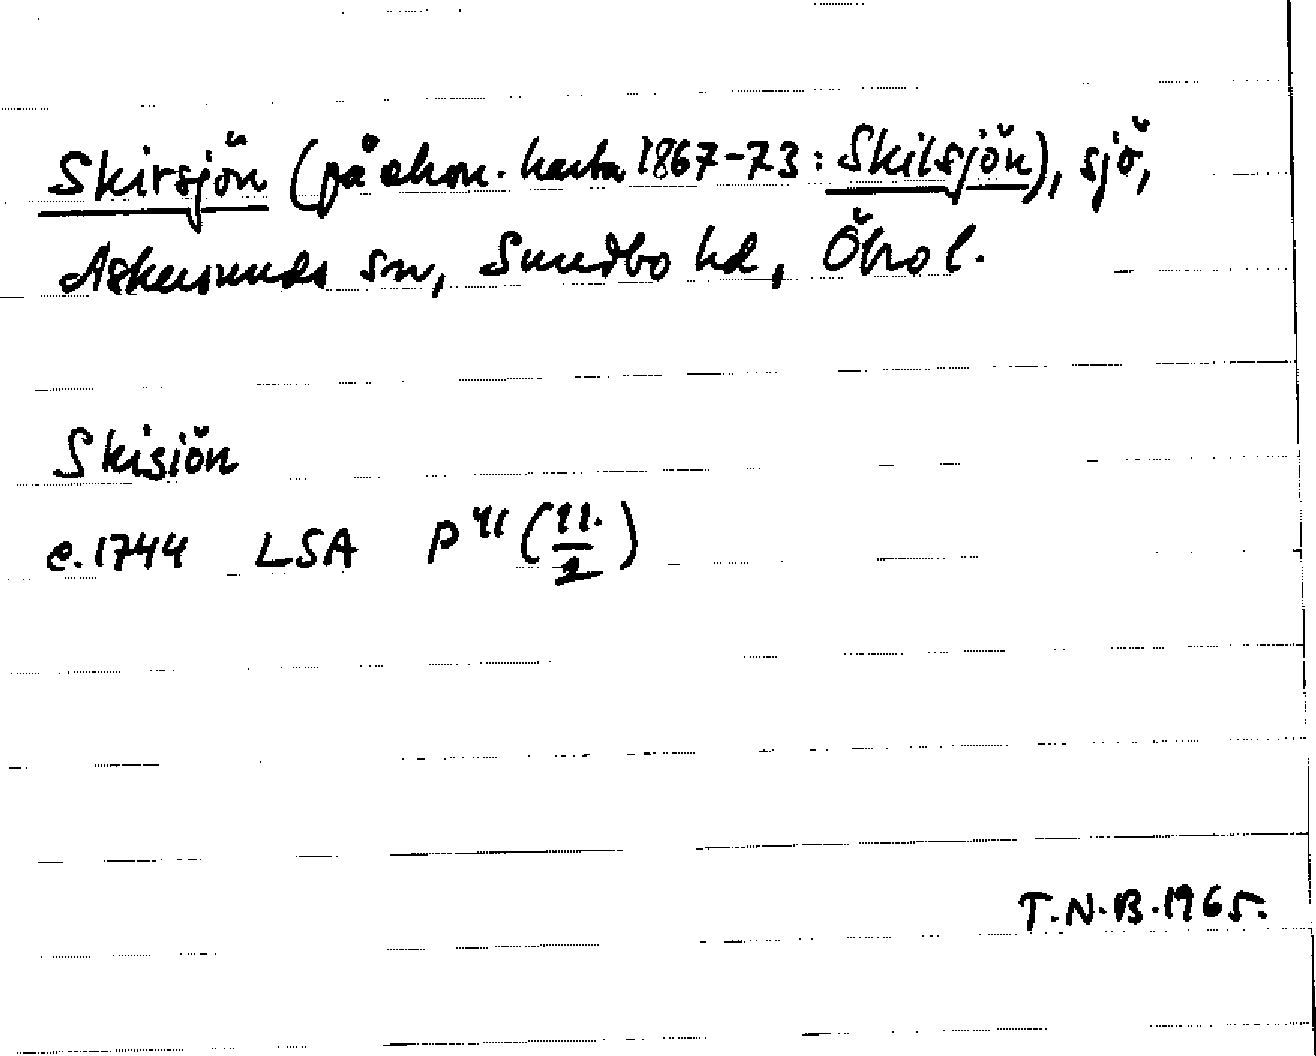 Skirsjön (på ekon. karta 1867-73: Skilsjön), sjö,
Askersunds sn, Sundbo hd, Öbro l.
Skisiön
c. 1744 LSA P 41 (11./2)
T.N.B. 1965.